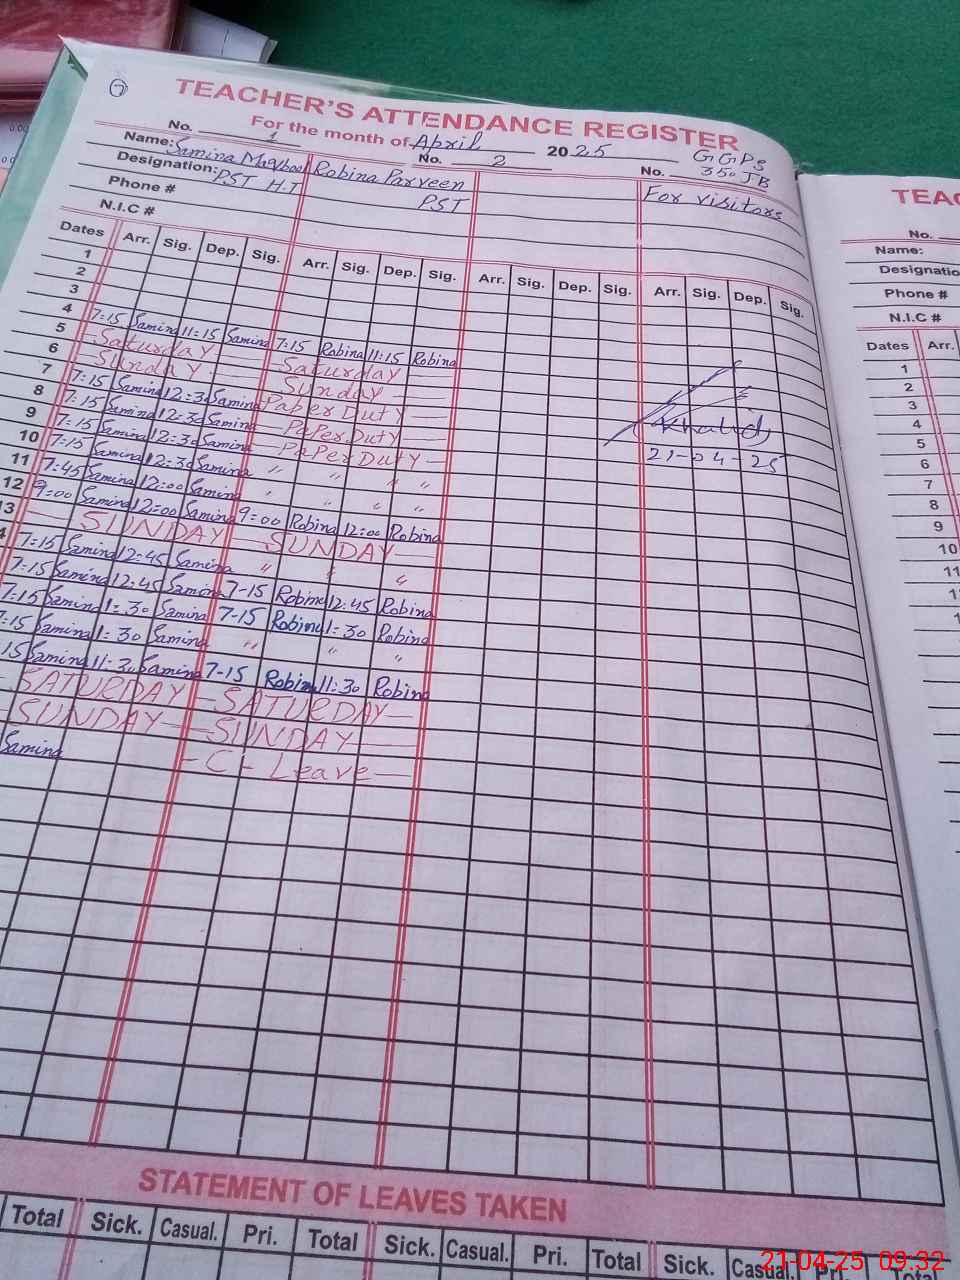 7
TEACHER'S ATTENDANCE REGISTER
For the month of April 2025
GGPS
350 JB
No. 1 No. 2 No.
Name: Samina Maqbool Robina Parveen For visitors
Designation: PST H.T PST
Phone #
N.I.C #
Dates Arr. Sig. Dep. Sig. Arr. Sig. Dep. Sig. Arr. Sig. Dep. Sig. Arr. Sig. Dep. Sig.
1
2
3
4 7:15 Samina 11:15 Samina 7:15 Robina 11:15 Robina
5 Saturday Saturday
6 Sunday Sunday
7 7:15 Samina 12:30 Samina Paper Duty
8 7:15 Samina 12:30 Samina Paper Duty
9 7:15 Samina 12:30 Samina Paper Duty
10 7:15 Samina 12:30 Samina " " " "
11 7:45 Samina 12:00 Samina " " "
12 9:00 Samina 12:00 Samina 9:00 Robina 12:00 Robina
13 SUNDAY SUNDAY
4 7:15 Samina 12:45 Samina " " "
7:15 Samina 12:45 Samina 7-15 Robina 12:45 Robina
7:15 Samina 1:30 Samina 7-15 Robina 1:30 Robina
:15 Samina 1:30 Samina " " "
15 Samina 11:30 Samina 7-15 Robina 11:30 Robina
SATURDAY SATURDAY
SUNDAY SUNDAY
Samina - C - Leave
Khalid
21-04-25
STATEMENT OF LEAVES TAKEN
Total Sick. Casual. Pri. Total Sick. Casual. Pri. Total Sick. Casual. Pri. Total
TEAC
No.
Name:
Designatio
Phone #
N.I.C #
Dates Arr.
1
2
3
4
5
6
7
8
9
10
11
1
1
21-04-25 09:32